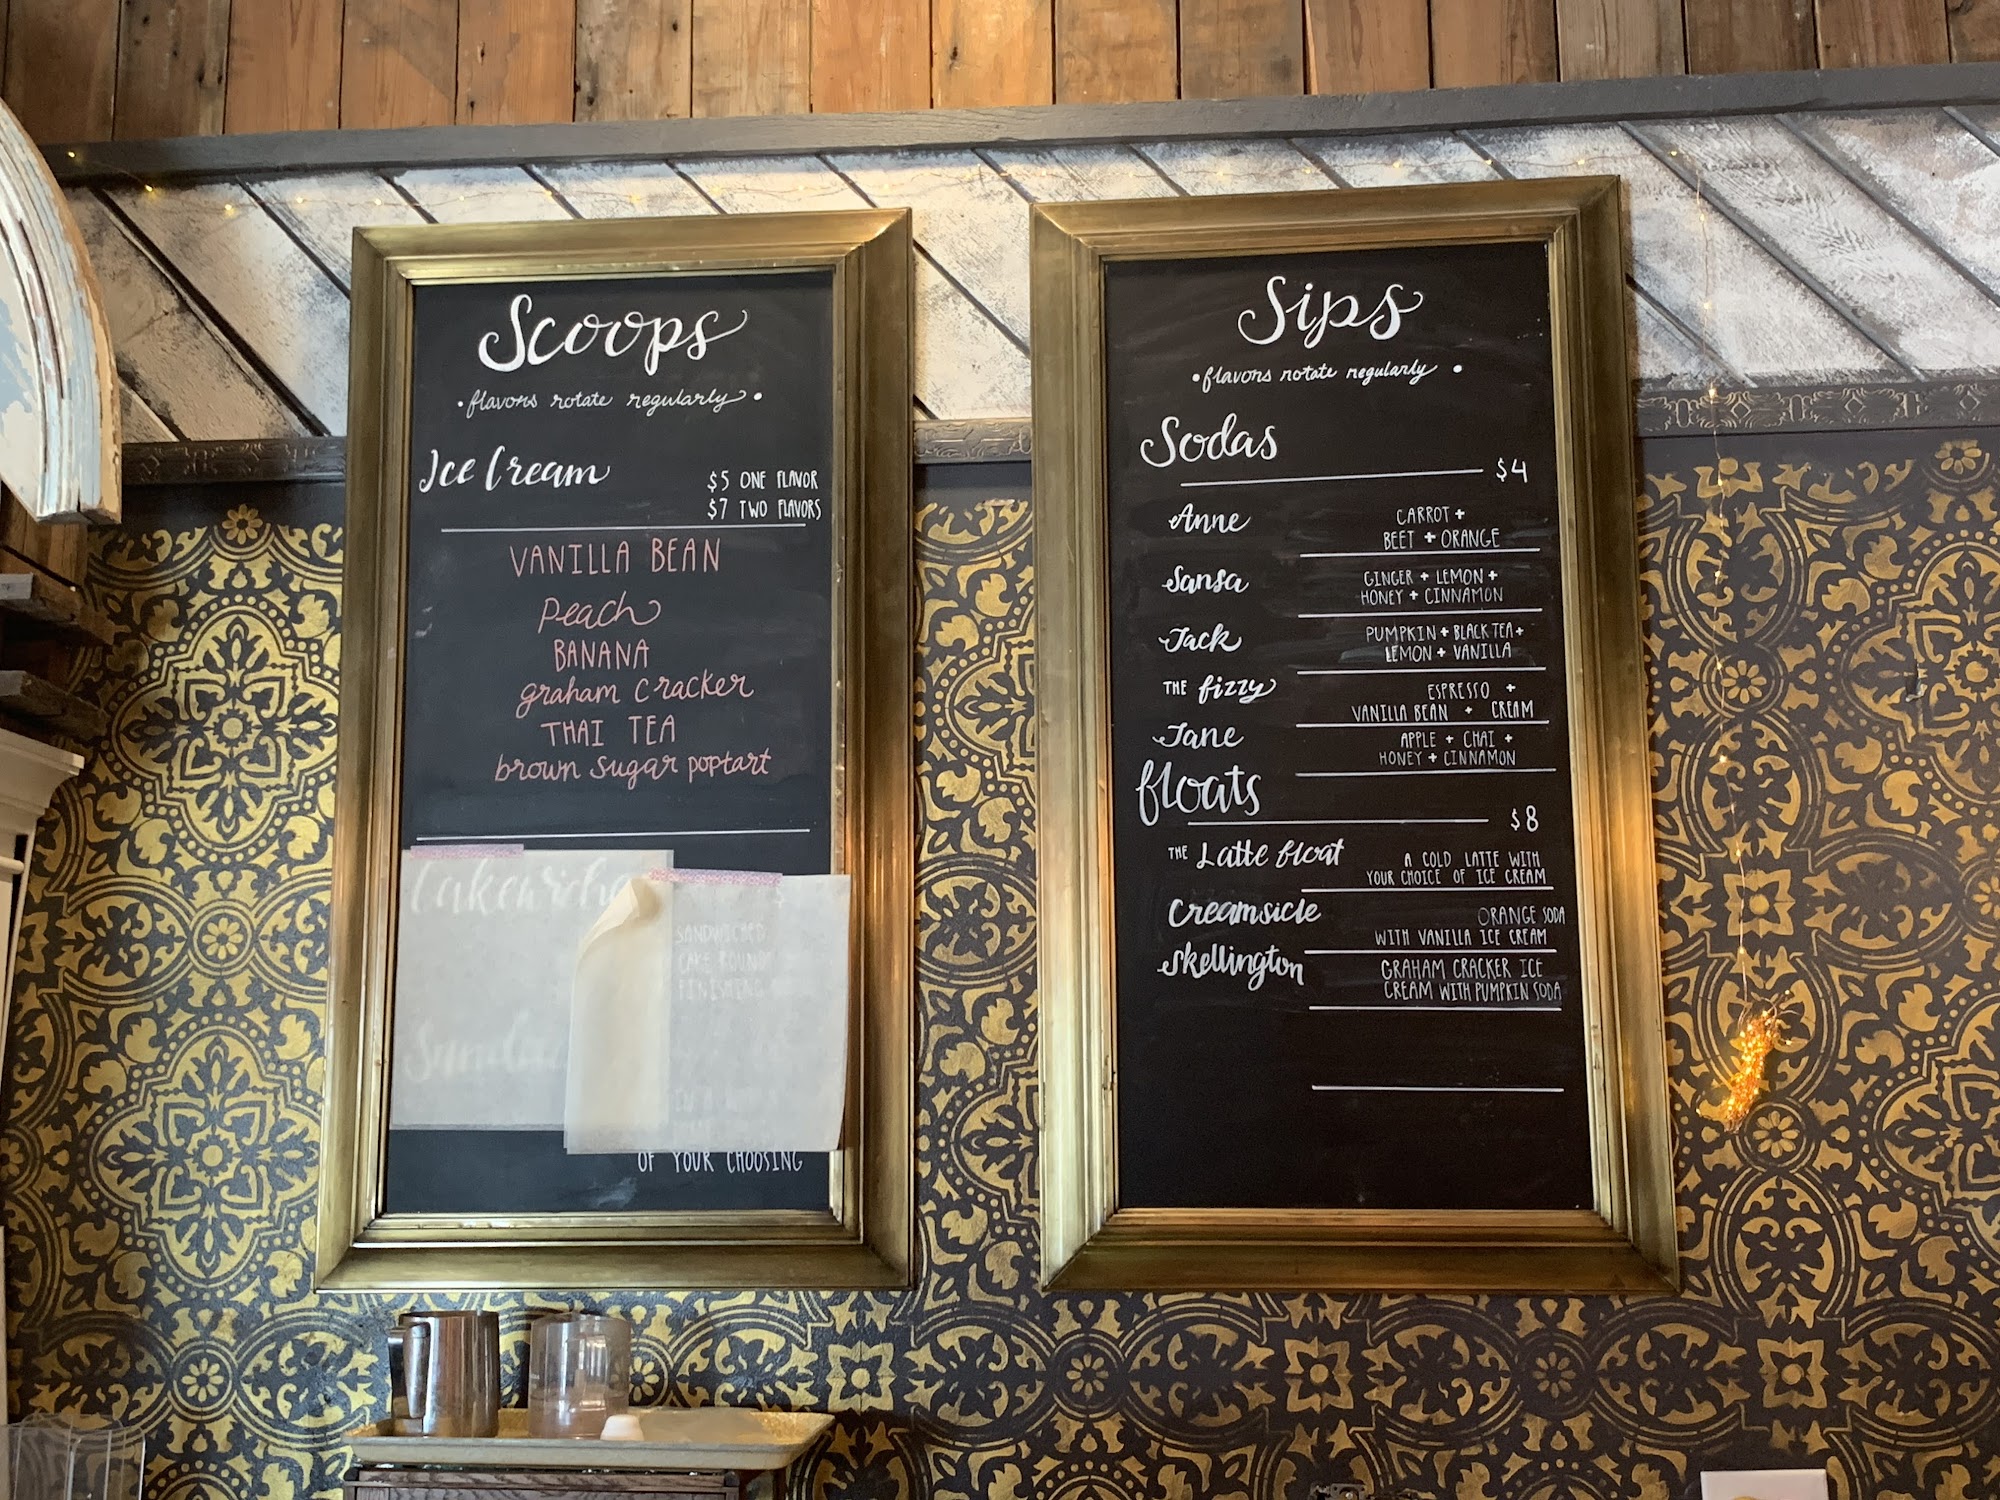 Scoops
• flavors rotate regularly •
Ice Cream
$5 ONE FLAVOR
$7 TWO FLAVORS
VANILLA BEAN
Peach
BANANA
graham cracker
THAI TEA
brown sugar poptart
SANDWICHED
CAKE ROUND
FINISHING
OF YOUR CHOOSING
Sips
• flavors rotate regularly •
Sodas
$4
Anne
CARROT +
BEET + ORANGE
Sansa
GINGER + LEMON +
HONEY + CINNAMON
Jack
PUMPKIN + BLACK TEA +
LEMON + VANILLA
THE fizzy
ESPRESSO +
VANILLA BEAN + CREAM
Jane
APPLE + CHAI +
HONEY + CINNAMON
floats
$8
THE Latte float
A COLD LATTE WITH
YOUR CHOICE OF ICE CREAM
Creamsicle
ORANGE SODA
WITH VANILLA ICE CREAM
Skellington
GRAHAM CRACKER ICE
CREAM WITH PUMPKIN SODA